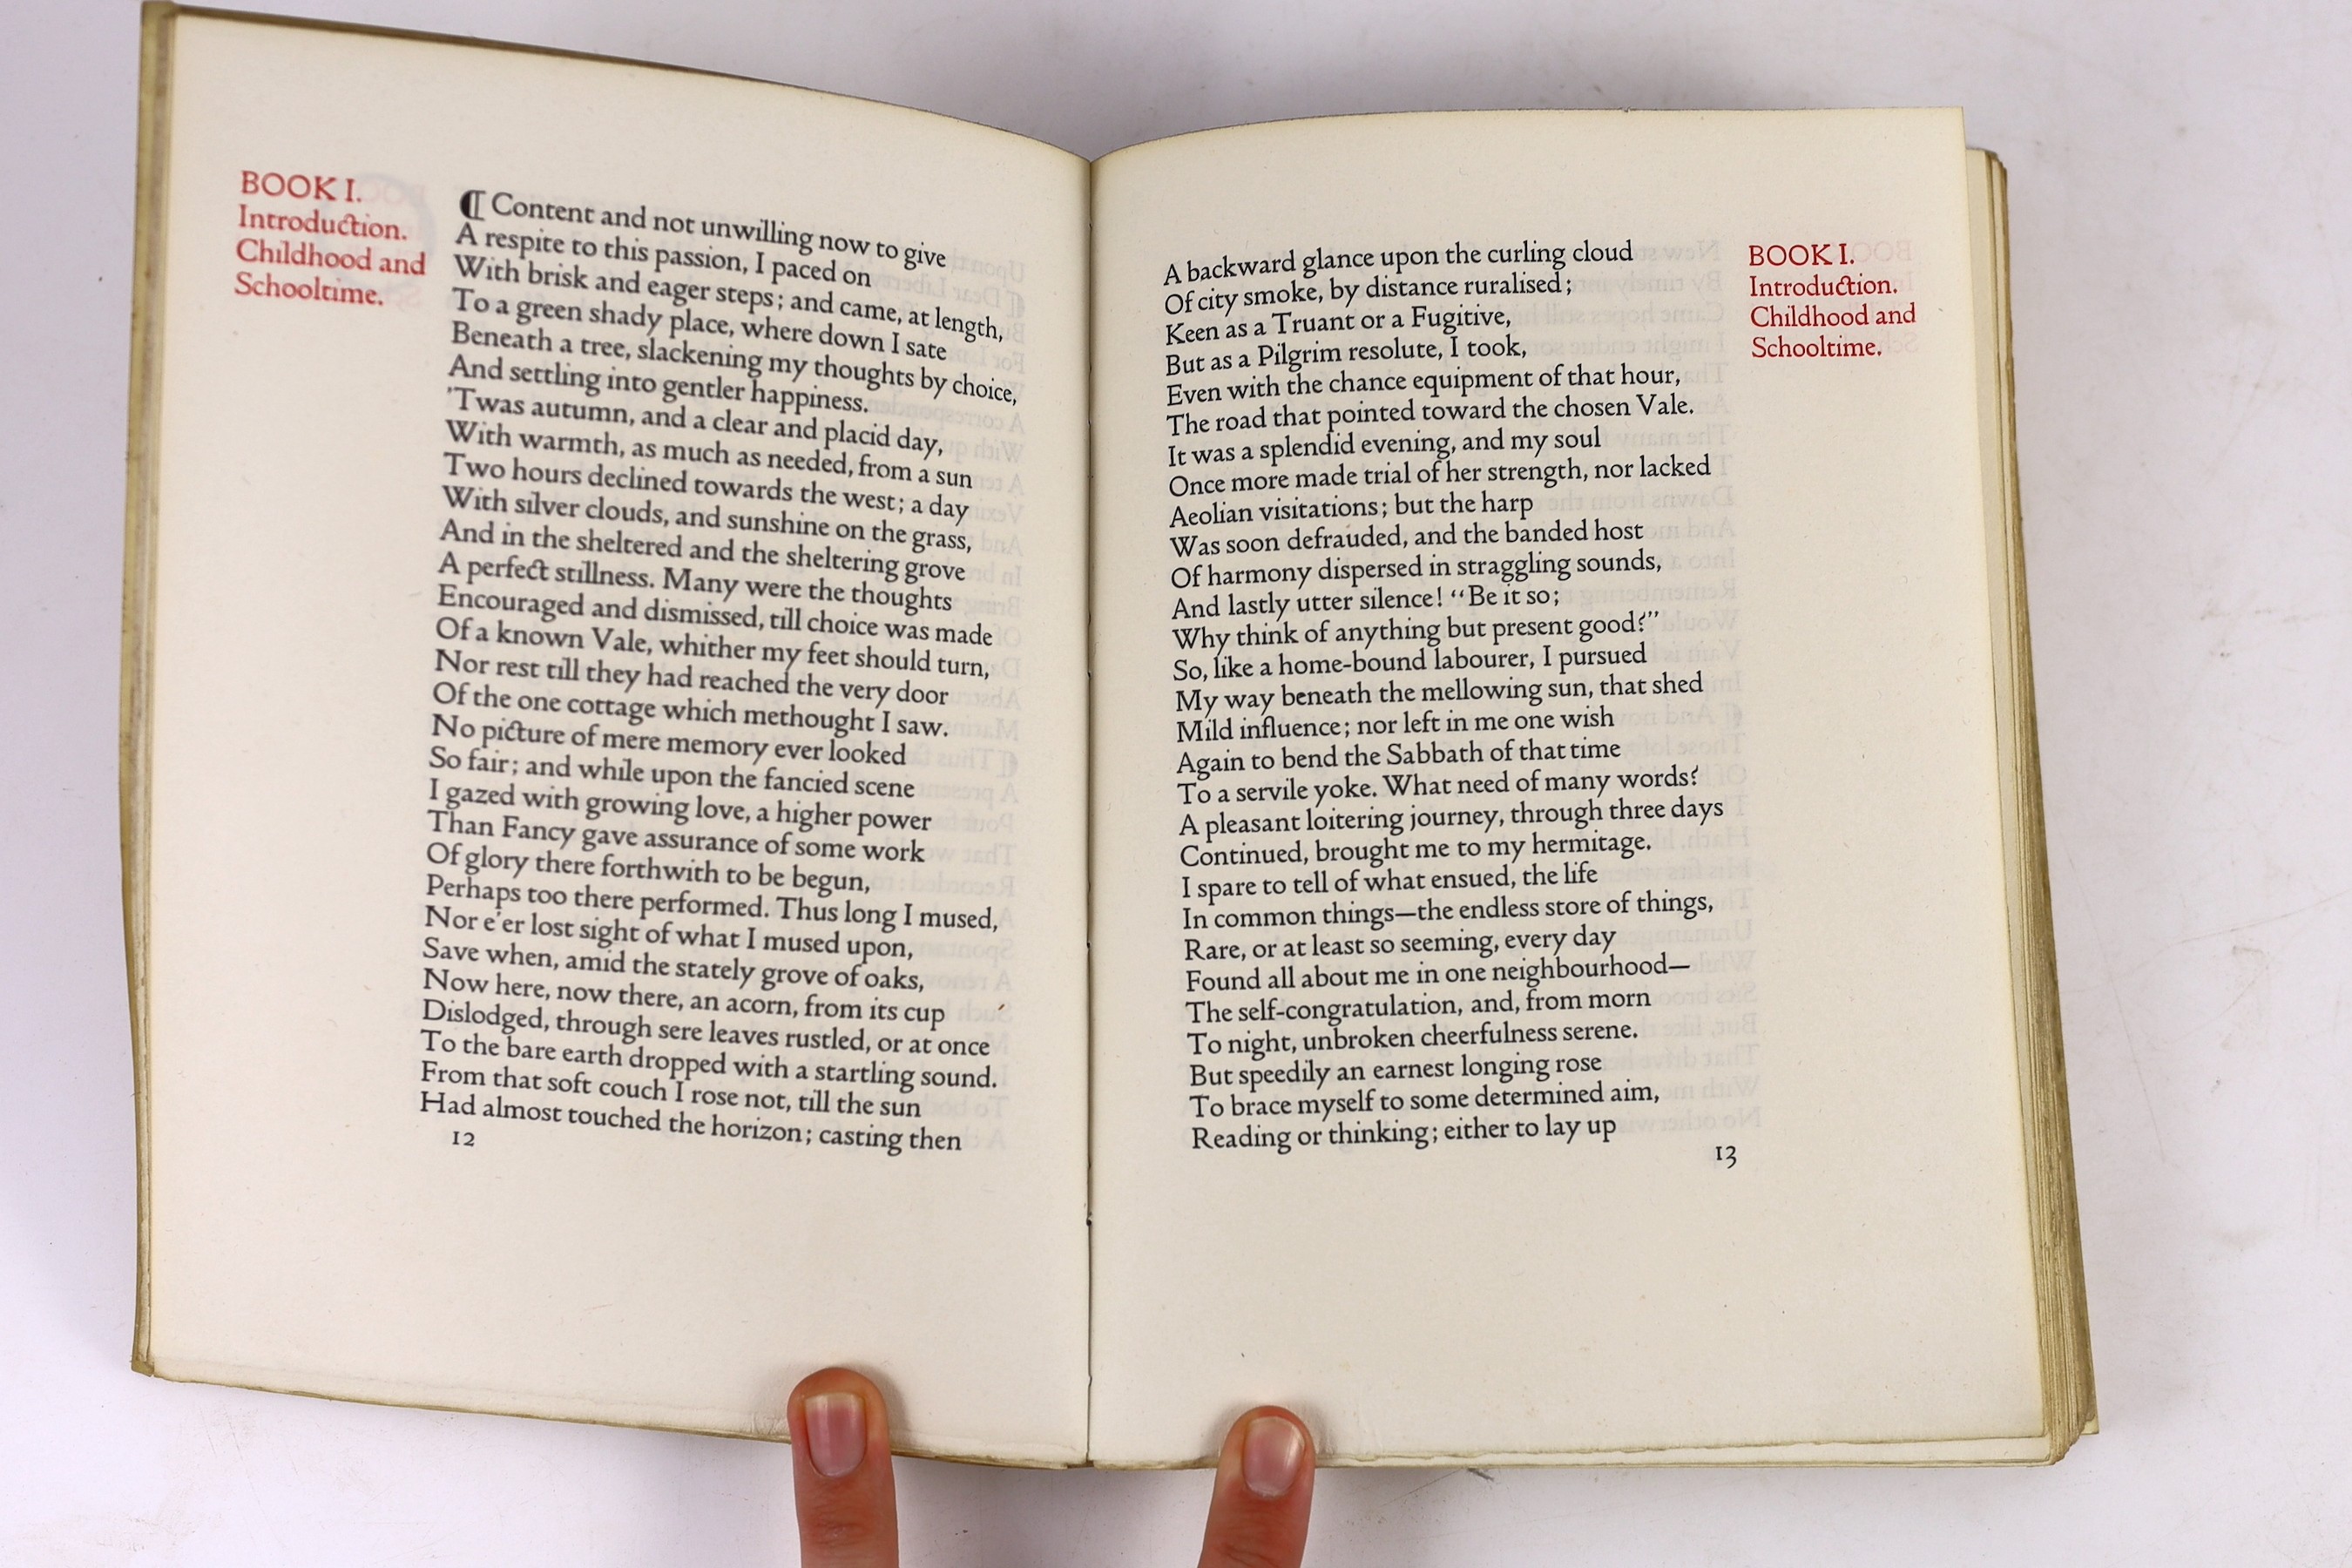 BOOK I.
Introduction.
Childhood and
Schooltime.
⁋ Content and not unwilling now to give
A respite to this passion, I paced on
With brisk and eager steps; and came, at length,
To a green shady place, where down I sate
Beneath a tree, slackening my thoughts by choice,
And settling into gentler happiness.
'Twas autumn, and a clear and placid day,
With warmth, as much as needed, from a sun
Two hours declined towards the west; a day
With silver clouds, and sunshine on the grass,
And in the sheltered and the sheltering grove
A perfect stillness. Many were the thoughts
Encouraged and dismissed, till choice was made
Of a known Vale, whither my feet should turn,
Nor rest till they had reached the very door
Of the one cottage which methought I saw.
No picture of mere memory ever looked
So fair; and while upon the fancied scene
I gazed with growing love, a higher power
Than Fancy gave assurance of some work
Of glory there forthwith to be begun,
Perhaps too there performed. Thus long I mused,
Nor e'er lost sight of what I mused upon,
Save when, amid the stately grove of oaks,
Now here, now there, an acorn, from its cup
Dislodged, through sere leaves rustled, or at once
To the bare earth dropped with a startling sound.
From that soft couch I rose not, till the sun
Had almost touched the horizon; casting then
12
A backward glance upon the curling cloud
Of city smoke, by distance ruralised;
Keen as a Truant or a Fugitive,
But as a Pilgrim resolute, I took,
Even with the chance equipment of that hour,
The road that pointed toward the chosen Vale.
It was a splendid evening, and my soul
Once more made trial of her strength, nor lacked
Aeolian visitations; but the harp
Was soon defrauded, and the banded host
Of harmony dispersed in straggling sounds,
And lastly utter silence! "Be it so;
Why think of anything but present good?"
So, like a home-bound labourer, I pursued
My way beneath the mellowing sun, that shed
Mild influence; nor left in me one wish
Again to bend the Sabbath of that time
To a servile yoke. What need of many words?
A pleasant loitering journey, through three days
Continued, brought me to my hermitage.
I spare to tell of what ensued, the life
In common things—the endless store of things,
Rare, or at least so seeming, every day
Found all about me in one neighbourhood—
The self-congratulation, and, from morn
To night, unbroken cheerfulness serene.
But speedily an earnest longing rose
To brace myself to some determined aim,
Reading or thinking; either to lay up
13
BOOK I.
Introduction.
Childhood and
Schooltime.